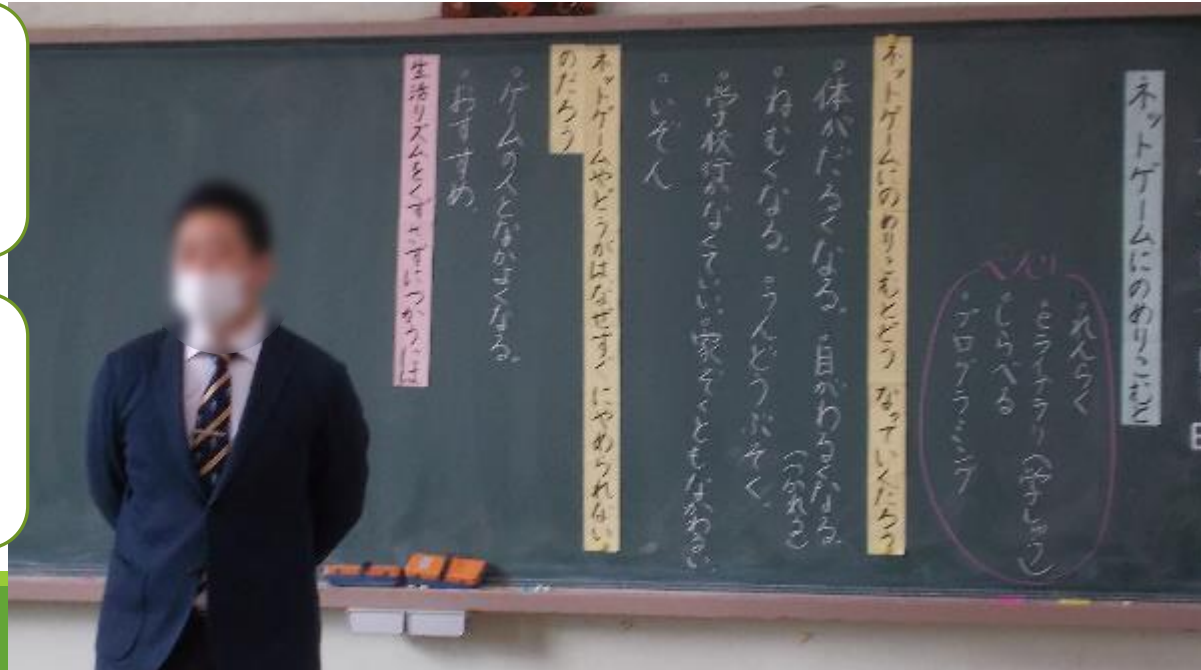 ネットゲームにのめりこむと
べんり
。れんらく
。eライブラリ(学しゅう)
。しらべる
。プログラミング
ネットゲームにのめりこむとどう なっていくだろう
。体がだるくなる。目がわるくなる。
(つかれる)
。ねむくなる。 うんどうぶそく。
。学校行かなくていい。家ぞくともなかわるい。
。いぞん
ネットゲームやどうがはなぜすぐ にやめられない
のだろう
。ゲームの人となかよくなる。
。おすすめ。
生活リズムをくずさずにつかうには